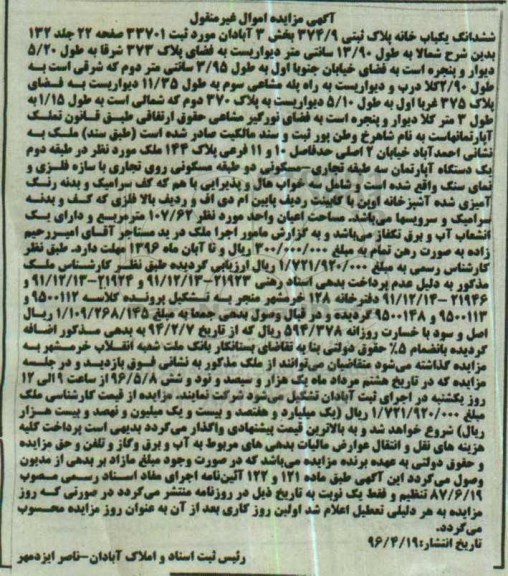 آگهی مزایده اموال غیرمنقول
ششدانگ یکباب خانه پلاک ثبتی ۳۷۴/۹ بخش ۳ آبادان مورد ثبت ۳۳۷۰۱ صفحه ۲۲ جلد ۱۳۲
بدین شرح شمالا به طول ۱۳/۹۰ سانتی متر دیواریست به فضای پلاک ۳۷۳ شرقا به طول ۵/۲۰
دیوار و پنجره است به فضای خیابان جنوبا اول به طول ۳/۹۵ سانتی متر دوم که شرقی است به
طول ۲/۹۰کلا درب و دیواریست به راه پله مشاعی سوم به طول ۱۱/۳۵ دیواریست به فضای
پلاک ۳۷۵ غربا اول به طول ۵/۱۰ دیواریست به پلاک ۳۷۰ دوم که شمالی است به طول ۱/۱۵ به
طول ۳ متر کلا دیوار و پنجره است به فضای نورگیر مشاعی حقوق ارتفاقی طبق قانون تملک
آپارتمانهاست به نام شاهرخ وطن پور ثبت و سند مالکیت صادر شده است (طبق سند) ملک به
نشانی احمدآباد خیابان ۲ اصلی حدفاصل ۱۰ و ۱۱ فرعی پلاک ۱۴۴ ملک مورد نظر در طبقه دوم
یک دستگاه آپارتمان سه طبقه تجاری-مسکونی دو طبقه مسکونی روی تجاری با سازه فلزی و
نمای سنگ واقع شده است و شامل سه خواب هال و پذیرایی با هم که کف سرامیک و بدنه رنگ
آمیزی شده آشپزخانه اوپن با کابینت ردیف پایین ام دی اف و ردیف بالا فلزی که کف و بدنه
سرامیک و سرویسها می‌باشد. مساحت اعیان واحد مورد نظر ۱۰۷/۶۲ مترمربع و دارای یک
انشعاب آب و برق تکفاز می‌باشد و به گزارش مامور اجرا ملک در ید مستاجر آقای امیررحیم
زاده به صورت رهن تمام به مبلغ ۳۰۰/۰۰۰/۰۰۰ ریال و تا آبان ماه ۱۳۹۶ مهلت دارد. طبق نظر
کارشناس رسمی به مبلغ ۱/۷۲۱/۹۲۰/۰۰۰ ریال ارزیابی گردیده طبق نظر کارشناس ملک
مذکور به دلیل عدم پرداخت بدهی اسناد رهنی ۲۱۹۲۳-۹۱/۱۲/۱۳ و ۲۱۹۲۴-۹۱/۱۲/۱۳ و
۲۱۹۴۶ -۹۱/۱۲/۱۴ دفترخانه ۱۲۸ خرمشهر منجر به تشکیل پرونده کلاسه ۹۵۰۰۱۱۲ و
۹۵۰۰۱۱۳ و ۹۵۰۰۱۴۸ گردیده و در قبال وصول بدهی جمعا به مبلغ ۱/۱۰۹/۲۶۸/۱۴۵ ریال
اصل و سود با خسارت روزانه ۵۹۴/۳۷۸ ریال که از تاریخ ۹۴/۲/۷ به بدهی مذکور اضافه
گردیده بانضمام ۵٪ حقوق دولتی بنا به تقاضای بستانکار بانک ملت شعبه انقلاب خرمشهر به
مزایده گذاشته می‌شود متقاضیان می‌توانند از ملک مذکور به نشانی فوق بازدید و در جلسه
مزایده که در تاریخ هشتم مرداد ماه یک هزار و سیصد و نود و شش ۹۶/۵/۸ از ساعت ۹ الی ۱۲
روز یکشنبه در اجرای ثبت آبادان تشکیل می‌شود شرکت نمایند. مزایده از قیمت کارشناسی ملک
مبلغ ۱/۷۲۱/۹۲۰/۰۰۰ ریال (یک میلیارد و هفتصد و بیست و یک میلیون و نهصد و بیست هزار
ریال) شروع خواهد شد و به بالاترین قیمت پیشنهادی واگذار می‌گردد بدیهی است پرداخت کلیه
هزینه های نقل و انتقال عوارض مالیات بدهی های مربوط به آب و برق وگاز و تلفن و حق مزایده
و حقوق دولتی به عهده برنده مزایده می‌باشد که در صورت وجود مبلغ مازاد بر بدهی از مدیون
وصول می‌گردد این آگهی طبق ماده ۱۲۱ و ۱۲۲ آئین‌نامه اجرای مفاد اسناد رسمی مصوب
۸۷/۶/۱۹ تنظیم و فقط یک نوبت به تاریخ ذیل در روزنامه منتشر می‌گردد در صورتی که روز
مزایده به هر دلیلی تعطیل اعلام شد اولین روز کاری بعد از آن به عنوان روز مزایده محسوب
می‌گردد.
تاریخ انتشار: ۹۶/۴/۱۹
رئیس ثبت اسناد و املاک آبادان-ناصر ایزدمهر